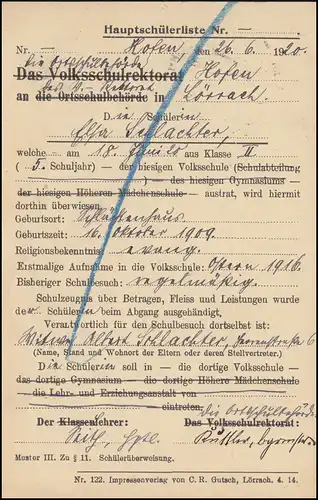 Hauptschülerliste Nr. —
Nr. — Hofen den 26. 6. 1920.
Die Ortsschulbehörde Hofen
Das Volksschulrektorat
das V.- Rektorat
an die Ortsschulbehörde in Lörrach.
Die Schülerin
Elsa Schlachter,
welche am 18. Juni ds aus Klasse II
( 5. Schuljahr) — der hiesigen Volksschule (Schulabteilung
) — des hiesigen Gymnasiums —
der hiesigen Höheren Mädchenschule — austrat, wird hiermit
dorthin überwiesen.
Geburtsort:
Geburtszeit: 16. Oktober 1909.
Religionsbekenntnis: evang.
Erstmalige Aufnahme in die Volksschule: Ostern 1916.
Bisheriger Schulbesuch: regelmäßig.
Schulzeugnis über Betragen, Fleiss und Leistungen wurde
der Schülerin beim Abgang ausgehändigt,
Verantwortlich für den Schulbesuch dortselbst ist:
Witwe Albert Schlachter, Herrenstraße 6
(Name, Stand und Wohnort der Eltern oder deren Stellvertreter.)
Die Schülerin soll in — die dortige Volksschule —
das dortige Gymnasium — die dortige Höhere Mädchenschule
— die Lehr- und Erziehungsanstalt von
eintreten.
Die Ortsschulbehörde
Der Klassenlehrer: Das Volksschulrektorat:
Hptl.
Muster III. Zu § 11. Schülerüberweisung.
Nr. 122. Impressenverlag von C. R. Gutsch, Lörrach. 4. 14.